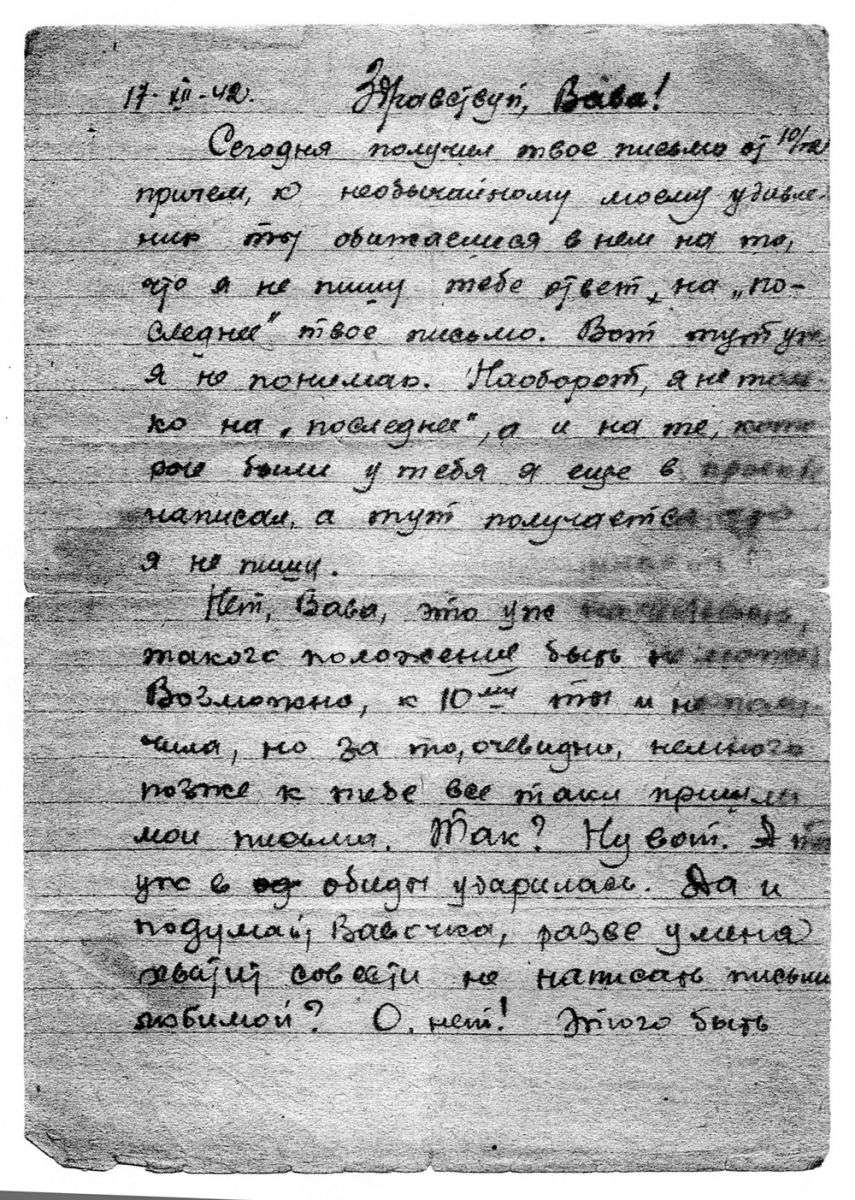 17-XII-42. Здравствуй, Вава!
Сегодня получил твое письмо от
причем, к необычайному моему удивле-
нию ты обижаешися в нем на то,
что я не пишу тебе ответ, на „по-
следнее" твое письмо. Вот тут уж
я не понимаю. Наоборот, я не толь-
ко на „последнее", а и на те, кото
рые были у тебя я еще в
написал, а тут получается
я не пишу.
Нет, Вава, это уж
такого положения быть не может
Возможно, к 10му ты и не полу-
чила, но за то, очевидно, немного
позже к тебе все таки пришли
мои письма. Так? Ну вот. А ты
уж в обиды ударилась. Да и
подумай, Вавочка, разве у меня
хватит совести не написать письмо
любимой? О, нет! Этого быть